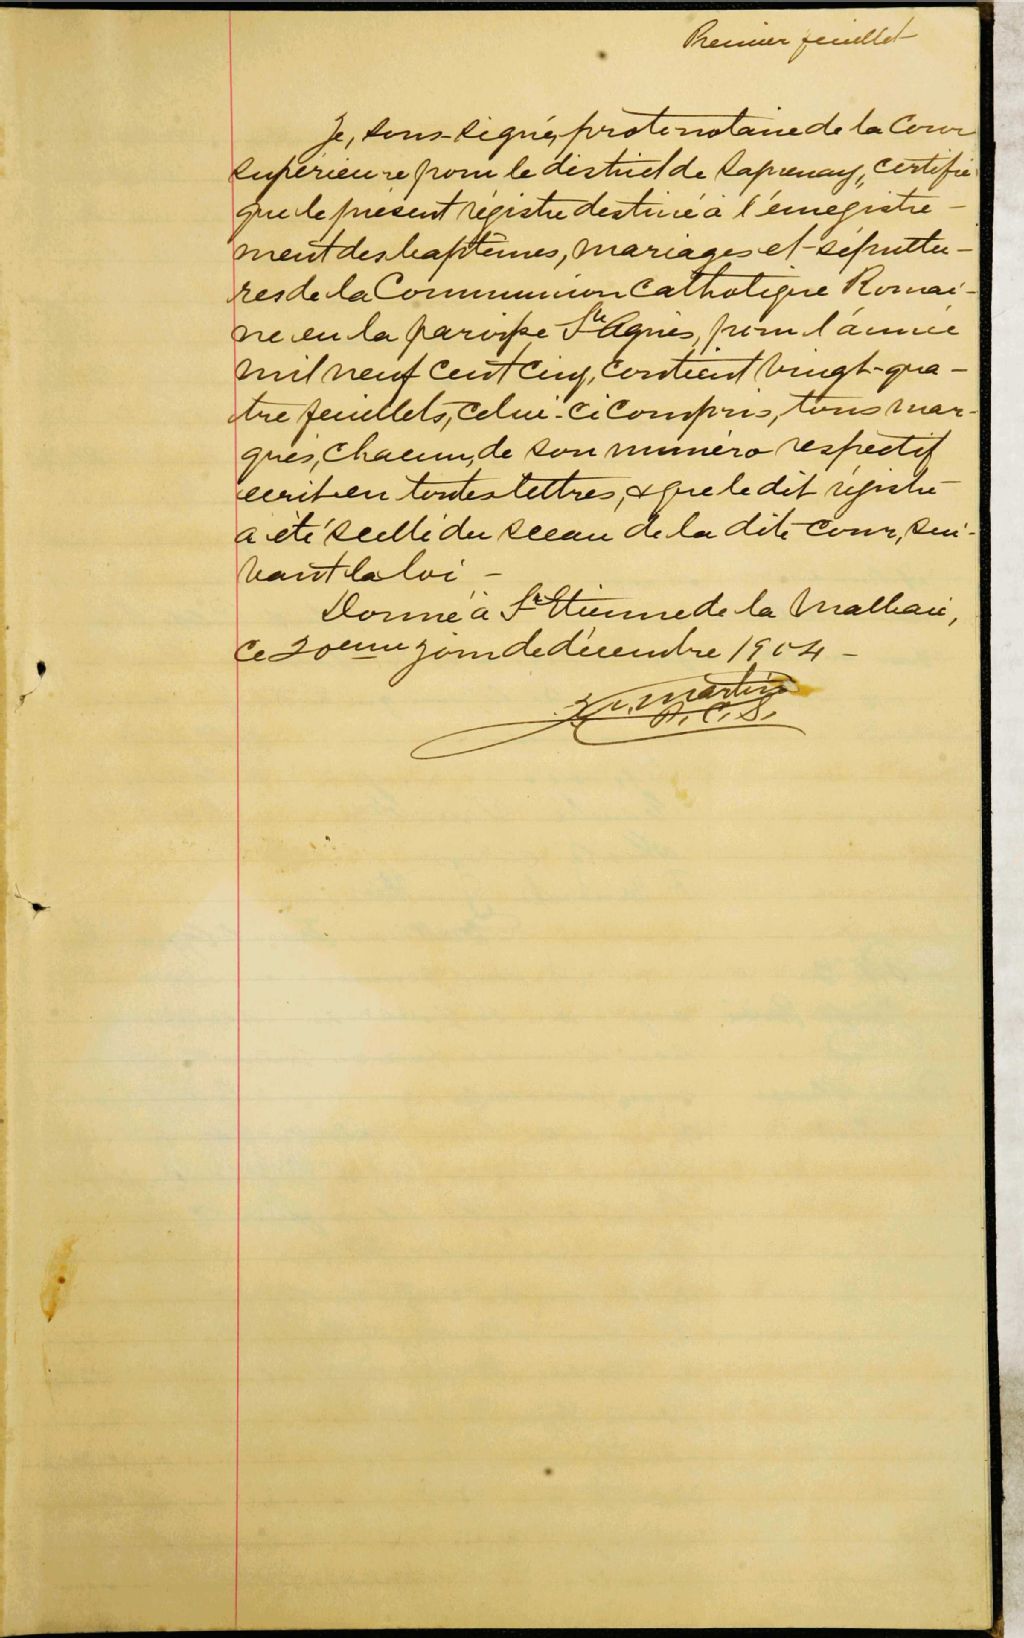 Premier feuillet
Je, sous-signé, protonotaire de la Cour
supérieure pour le district de Saguenay, certifie
que le présent régistre destiné à l'enregistre-
ment des baptêmes, mariages et sépultu-
res de la Communion Catholique Romai-
ne en la paroisse Ste Agnès, pour l'année
mil neuf cent cinq, contient vingt-qua-
tre feuillets, celui-ci compris, tous mar-
qués, chacun, de son numéro respectif
écrit en toutes lettres, & que le dit régistre
a été scellé du sceau de la dite Cour, sui-
vant la loi -
Donné à St Etienne de la Malbaie,
ce 20eme jour de décembre 1904 -
Martin
P. C. S.